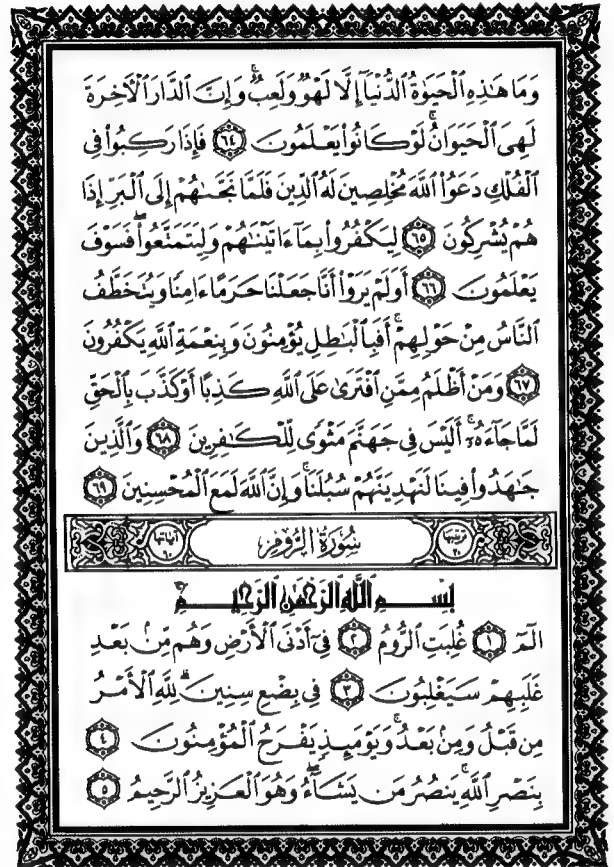 وَمَا هَٰذِهِ ٱلْحَيَوٰةُ ٱلدُّنْيَآ إِلَّا لَهْوٌ وَلَعِبٌ ۚ وَإِنَّ ٱلدَّارَ ٱلْءَاخِرَةَ
لَهِىَ ٱلْحَيَوَانُ ۚ لَوْ كَانُوا۟ يَعْلَمُونَ ٦٤ فَإِذَا رَكِبُوا۟ فِى
ٱلْفُلْكِ دَعَوُا۟ ٱللَّهَ مُخْلِصِينَ لَهُ ٱلدِّينَ فَلَمَّا نَجَّىٰهُمْ إِلَى ٱلْبَرِّ إِذَا
هُمْ يُشْرِكُونَ ٦٥ لِيَكْفُرُوا۟ بِمَآ ءَاتَيْنَٰهُمْ وَلِيَتَمَتَّعُوا۟ ۖ فَسَوْفَ
يَعْلَمُونَ ٦٦ أَوَلَمْ يَرَوْا۟ أَنَّا جَعَلْنَا حَرَمًا ءَامِنًا وَيُتَخَطَّفُ
ٱلنَّاسُ مِنْ حَوْلِهِمْ ۚ أَفَبِٱلْبَٰطِلِ يُؤْمِنُونَ وَبِنِعْمَةِ ٱللَّهِ يَكْفُرُونَ
٦٧ وَمَنْ أَظْلَمُ مِمَّنِ ٱفْتَرَىٰ عَلَى ٱللَّهِ كَذِبًا أَوْ كَذَّبَ بِٱلْحَقِّ
لَمَّا جَآءَهُۥٓ ۚ أَلَيْسَ فِى جَهَنَّمَ مَثْوًى لِّلْكَٰفِرِينَ ٦٨ وَٱلَّذِينَ
جَٰهَدُوا۟ فِينَا لَنَهْدِيَنَّهُمْ سُبُلَنَا ۚ وَإِنَّ ٱللَّهَ لَمَعَ ٱلْمُحْسِنِينَ ٦٩
ترتيبها ٣٠ سُورَةُ ٱلرُّومِ آياتها ٦٠
بِسْمِ ٱللَّهِ ٱلرَّحْمَٰنِ ٱلرَّحِيمِ
الٓمٓ ١ غُلِبَتِ ٱلرُّومُ ٢ فِىٓ أَدْنَى ٱلْأَرْضِ وَهُم مِّنۢ بَعْدِ
غَلَبِهِمْ سَيَغْلِبُونَ ٣ فِى بِضْعِ سِنِينَ ۗ لِلَّهِ ٱلْأَمْرُ
مِن قَبْلُ وَمِنۢ بَعْدُ ۚ وَيَوْمَئِذٍ يَفْرَحُ ٱلْمُؤْمِنُونَ ٤
بِنَصْرِ ٱللَّهِ ۚ يَنصُرُ مَن يَشَآءُ ۖ وَهُوَ ٱلْعَزِيزُ ٱلرَّحِيمُ ٥